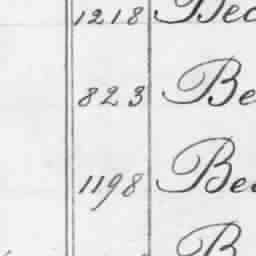 1218 Bec
823 Be
1198 Bec
B